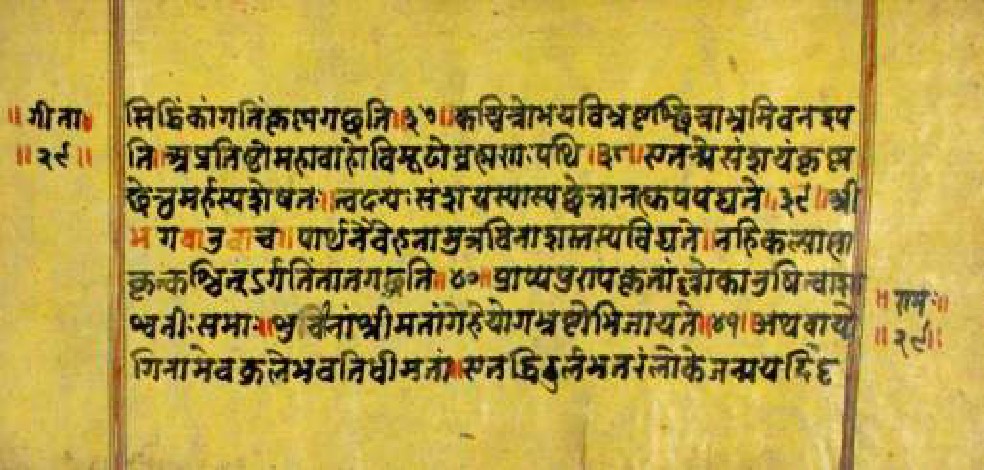 ॥गीता॥
॥२९॥
सिद्धिंकांगतिंकृष्णगछति॥३७॥कच्चिन्नोभयविभ्रष्टश्छिन्नाभ्रमिवनश्य
ति॥अप्रतिष्ठोमहावाहोविमूढोब्रह्मणःपथि॥३८॥एतन्मेसंशयंकृष्ण
छेत्तुमर्हस्यशेषतः॥त्वदन्यःसंशयस्यास्यछेत्तानह्युपपद्यते॥३९॥श्री
भगवानुवाच॥पार्थनैवेहनामुत्रविनाशस्तस्यविद्यते॥नहिकल्याण
कृत्कश्चित्ऽर्गतिंतातगछति॥४०॥प्राप्यपुण्यकृतांल्लोकानुषित्वाशा
श्वतीःसमाः॥शुचिनांश्रीमतांगेहेयोगभ्रष्टोभिजायते॥४१॥अथवायो
गिनामेवकुलेभवतिधीमतां॥एतद्धिदुर्लभतरंलोकेजन्मयदिदृ
॥राम॥
॥२९॥